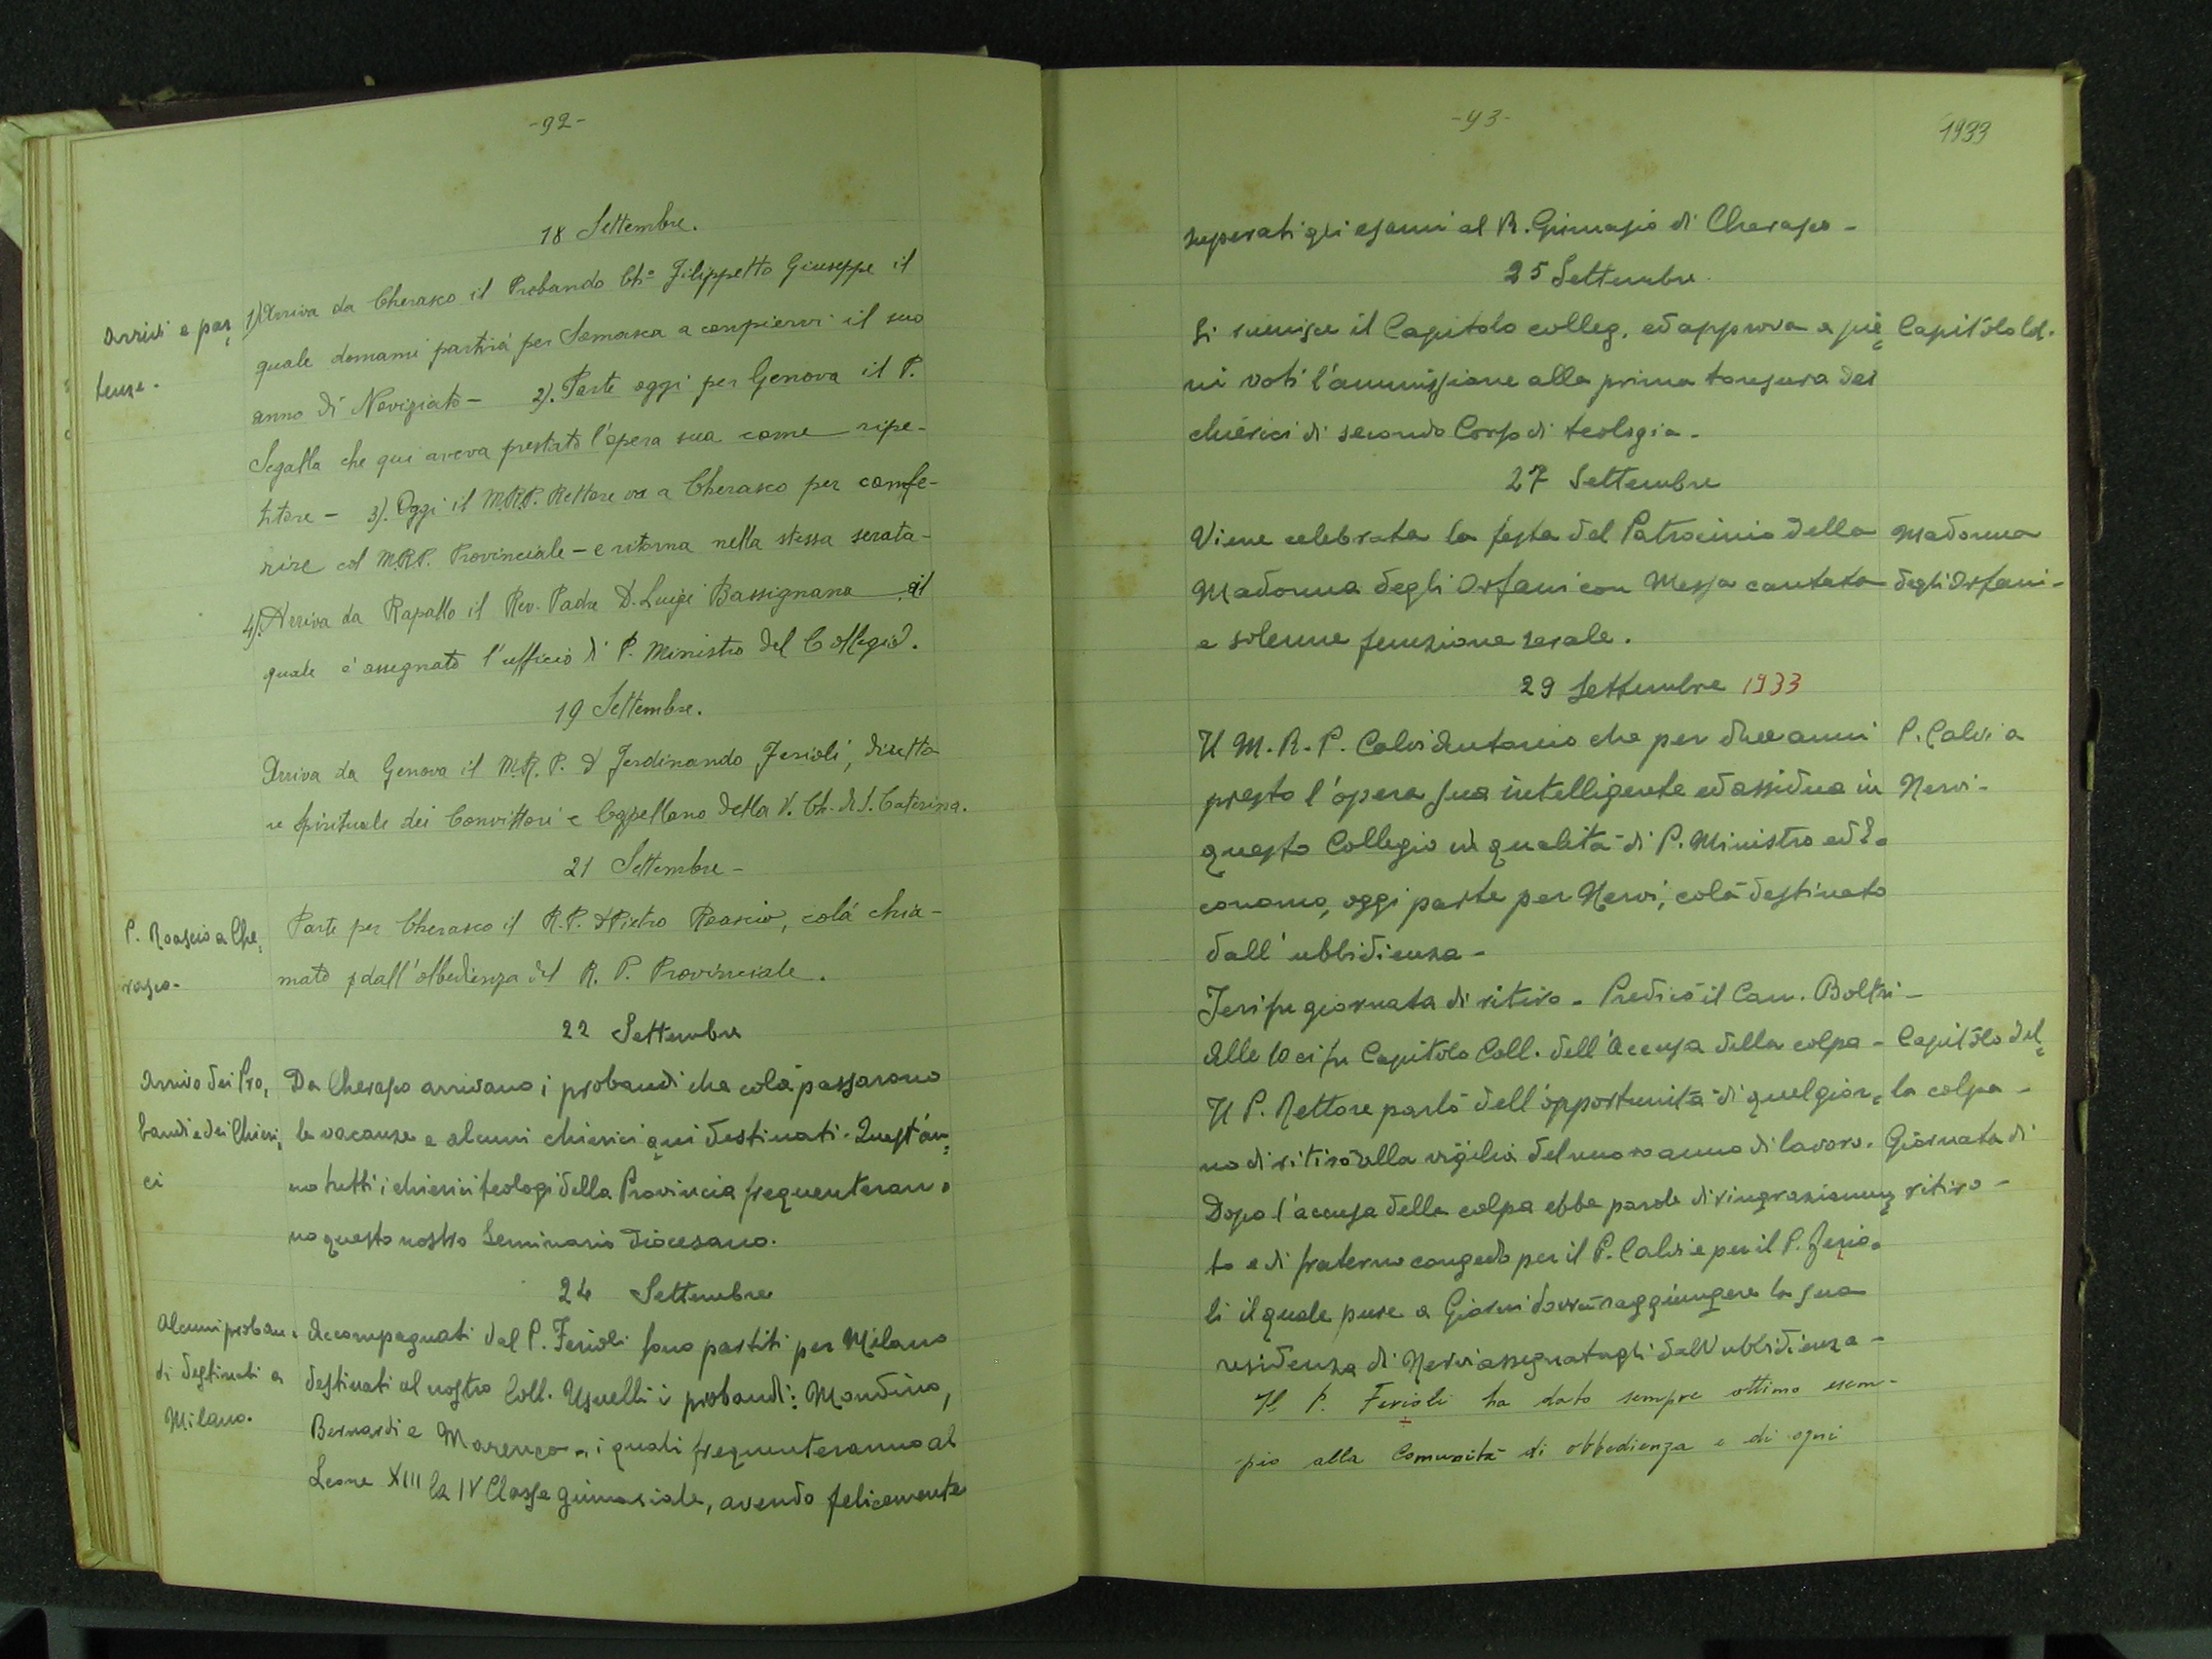 -92-
18 Settembre.
Arrivi e par=
tenze.
1) Arriva da Cherasco il Probando Ch.º Filippetto Giuseppe il
quale domani partirà per Somasca a compiervi il suo
anno di Noviziato - 2). Parte oggi per Genova il P.
Segalla che qui aveva prestato l'opera sua come ripe-
titore - 3). Oggi il M.R.P. Rettore va a Cherasco per confe-
rire col M.R.P. Provinciale - e ritorna nella stessa serata -
4). Arriva da Rapallo il Rev. Padre D. Luigi Bassignana al
quale è assegnato l'ufficio di P. Ministro del Collegio.
19 Settembre.
Arriva da Genova il M.R.P. D Ferdinando Ferioli, diretto
re spirituale dei Convittori e Cappellano della V. Ch. di S. Caterina.
21 Settembre -
P. Roascio a Che=
rasco-
Parte per Cherasco il R.P. D Pietro Roascio, colà chia-
mato dall'obbedienza del R. P. Provinciale.
22 Settembre
Arrivo dei Pro=
bandi e dei Chieri=
ci
Da Cherasco arrivano i probandi che colà passarono
le vacanze e alcuni chierici qui destinati. Quest'an=
no tutti i chierici teologi della Provincia frequenteran=
no questo nostro Seminario diocesano.
24 Settembre
Alcuni proban=
di destinati a
Milano.
Accompagnati dal P. Ferioli sono partiti per Milano
destinati al nostro Coll. Usuelli i probandi: Mondino,
Bernardi e Marenco - i quali frequenteranno al
Leone XIII la IV Classe ginnasiale, avendo felicemente
-93-
1933
superati gli esami al R. Ginnasio di Cherasco -
25 Settembre
Si riunisce il Capitolo colleg. ed approva a pie=
ni voti l'ammissione alla prima tonsura dei
chierici di secondo Corso di teologia -
Capitolo Col.
27 Settembre
Viene celebrata la festa del Patrocinio della
Madonna degli Orfani con Messa cantata
e solenne funzione serale.
Madonna
degli Orfani -
29 Settembre 1933
Il M. R. P. Calvi Antonio che per due anni
prestò l'opera sua intelligente ed assidua in
questo Collegio in qualità di P. Ministro ed E=
conomo, oggi parte per Nervi, colà destinato
dall'ubbidienza -
P. Calvi a
Nervi -
Ieri fu giornata di ritiro - Predicò il Can. Boltri -
Alle 10 ci fu Capitolo Coll. dell'Accusa della colpa -
Il P. Rettore parlò dell'opportunità di quel gior=
no di ritiro alla vigilia del nuovo anno di lavoro.
Dopo l'accusa della colpa ebbe parole di ringraziamen=
to e di fraterno congedo per il P. Calvi e per il P. Ferio=
li il quale pure a Giorni dovrà raggiungere la sua
residenza di Nervi assegnatagli dall'ubbidienza -
Capitolo del=
la colpa -
Giornata di
ritiro -
Il P. Ferioli ha dato sempre ottimo esem-
pio alla Comunità di obbedienza e di ogni